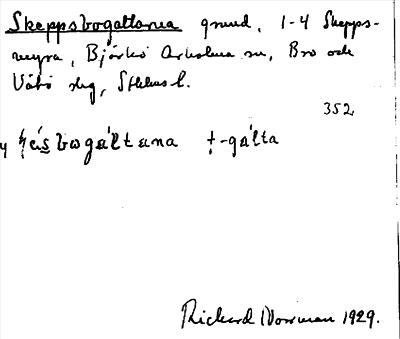 Skeppsbogaltarna grund, 1-4 Skepps-
myra, Björkö Arholma sn, Bro och
Vätö slg, Sthlms l.
352
bogáltana †-gálta
Richard Norrman 1929.